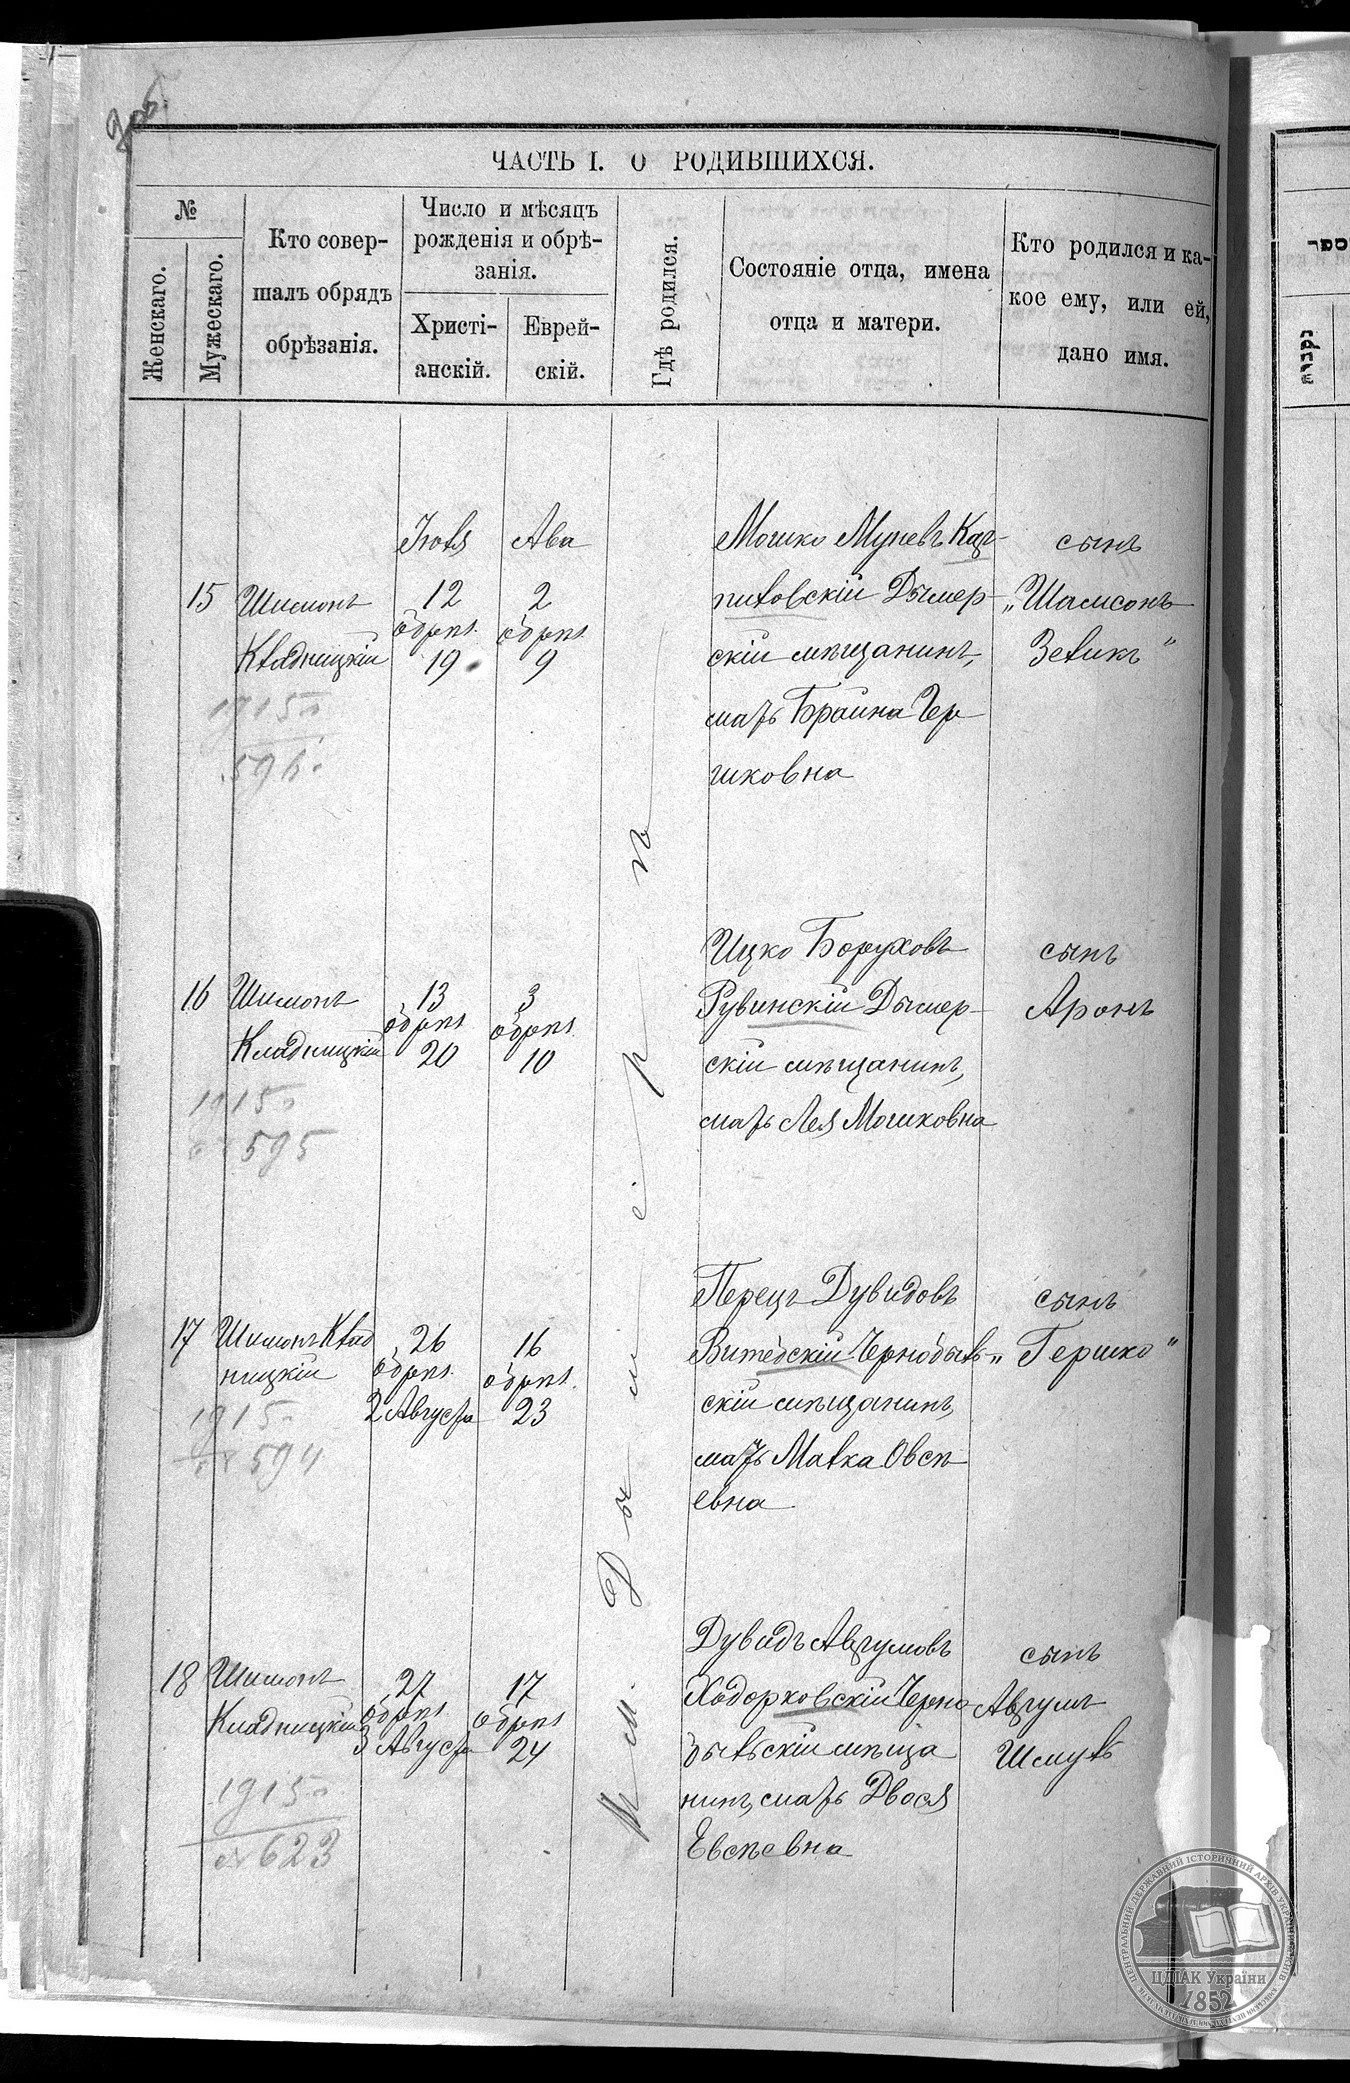 ЧАСТЬ I. О РОДИВШИХСЯ.
№
Женскаго.
Мужескаго.
Кто совер-
шалъ обрядъ
обрѣзанія.
Число и мѣсяцъ
рожденія и обрѣ-
занія.
Христі-
анскій.
Еврей-
скій.
Гдѣ родился.
Состояніе отца, имена
отца и матери.
Кто родился и ка-
кое ему, или ей,
дано имя.
15
Шимонъ
Кладницкій
1915
Іюля
12
обрѣз.
19
Ава
2
обрѣз.
9
Мошко
питовскій Дымер-
скій мѣщанинъ,
мать Браина Гер
шковна
сынъ
„Шамсонъ
Зеликъ"
16
Шимонъ
Кладницкій
1915
595
13
обрѣз.
20
3
обрѣз.
10
Ицко Боруховъ
Рувинскій Дымер-
скій мѣщанинъ,
мать Лея Мошковна
сынъ
Аронъ
17
Шимонъ Клад
ницкій
1915
594
26
обрѣз.
2 Августа
16
обрѣз.
23
Перецъ Дувидовъ
Витебскій Чернобыль
скій мѣщанинъ,
мать Малка Овсѣ
евна
сынъ
„Гершко"
18
Шимонъ
Кладницкій
1915
№ 623
27
обрѣз.
3 Августа
17
обрѣз.
24
Дувидъ Аврумовъ
Ходорковскій Черно
быльскій мѣща
нинъ, мать Двося
Евсѣевна
сынъ
Аврумъ
Шмуль
м. Дымерѣ
ספר
נקבות
ЦЕНТРАЛЬНИЙ ДЕРЖАВНИЙ ІСТОРИЧНИЙ АРХІВ УКРАЇНИ, М. КИЇВ
ЦДІАК України
1852